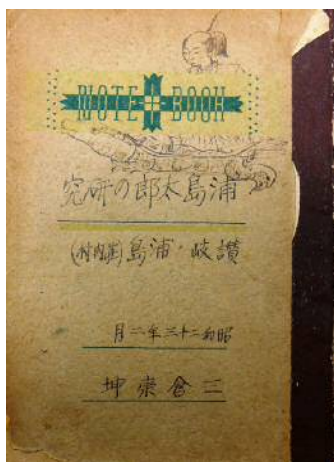 NOTE BOOK
浦島太郎の研究
讃岐・浦島(荘内村)
昭和二十三年二月